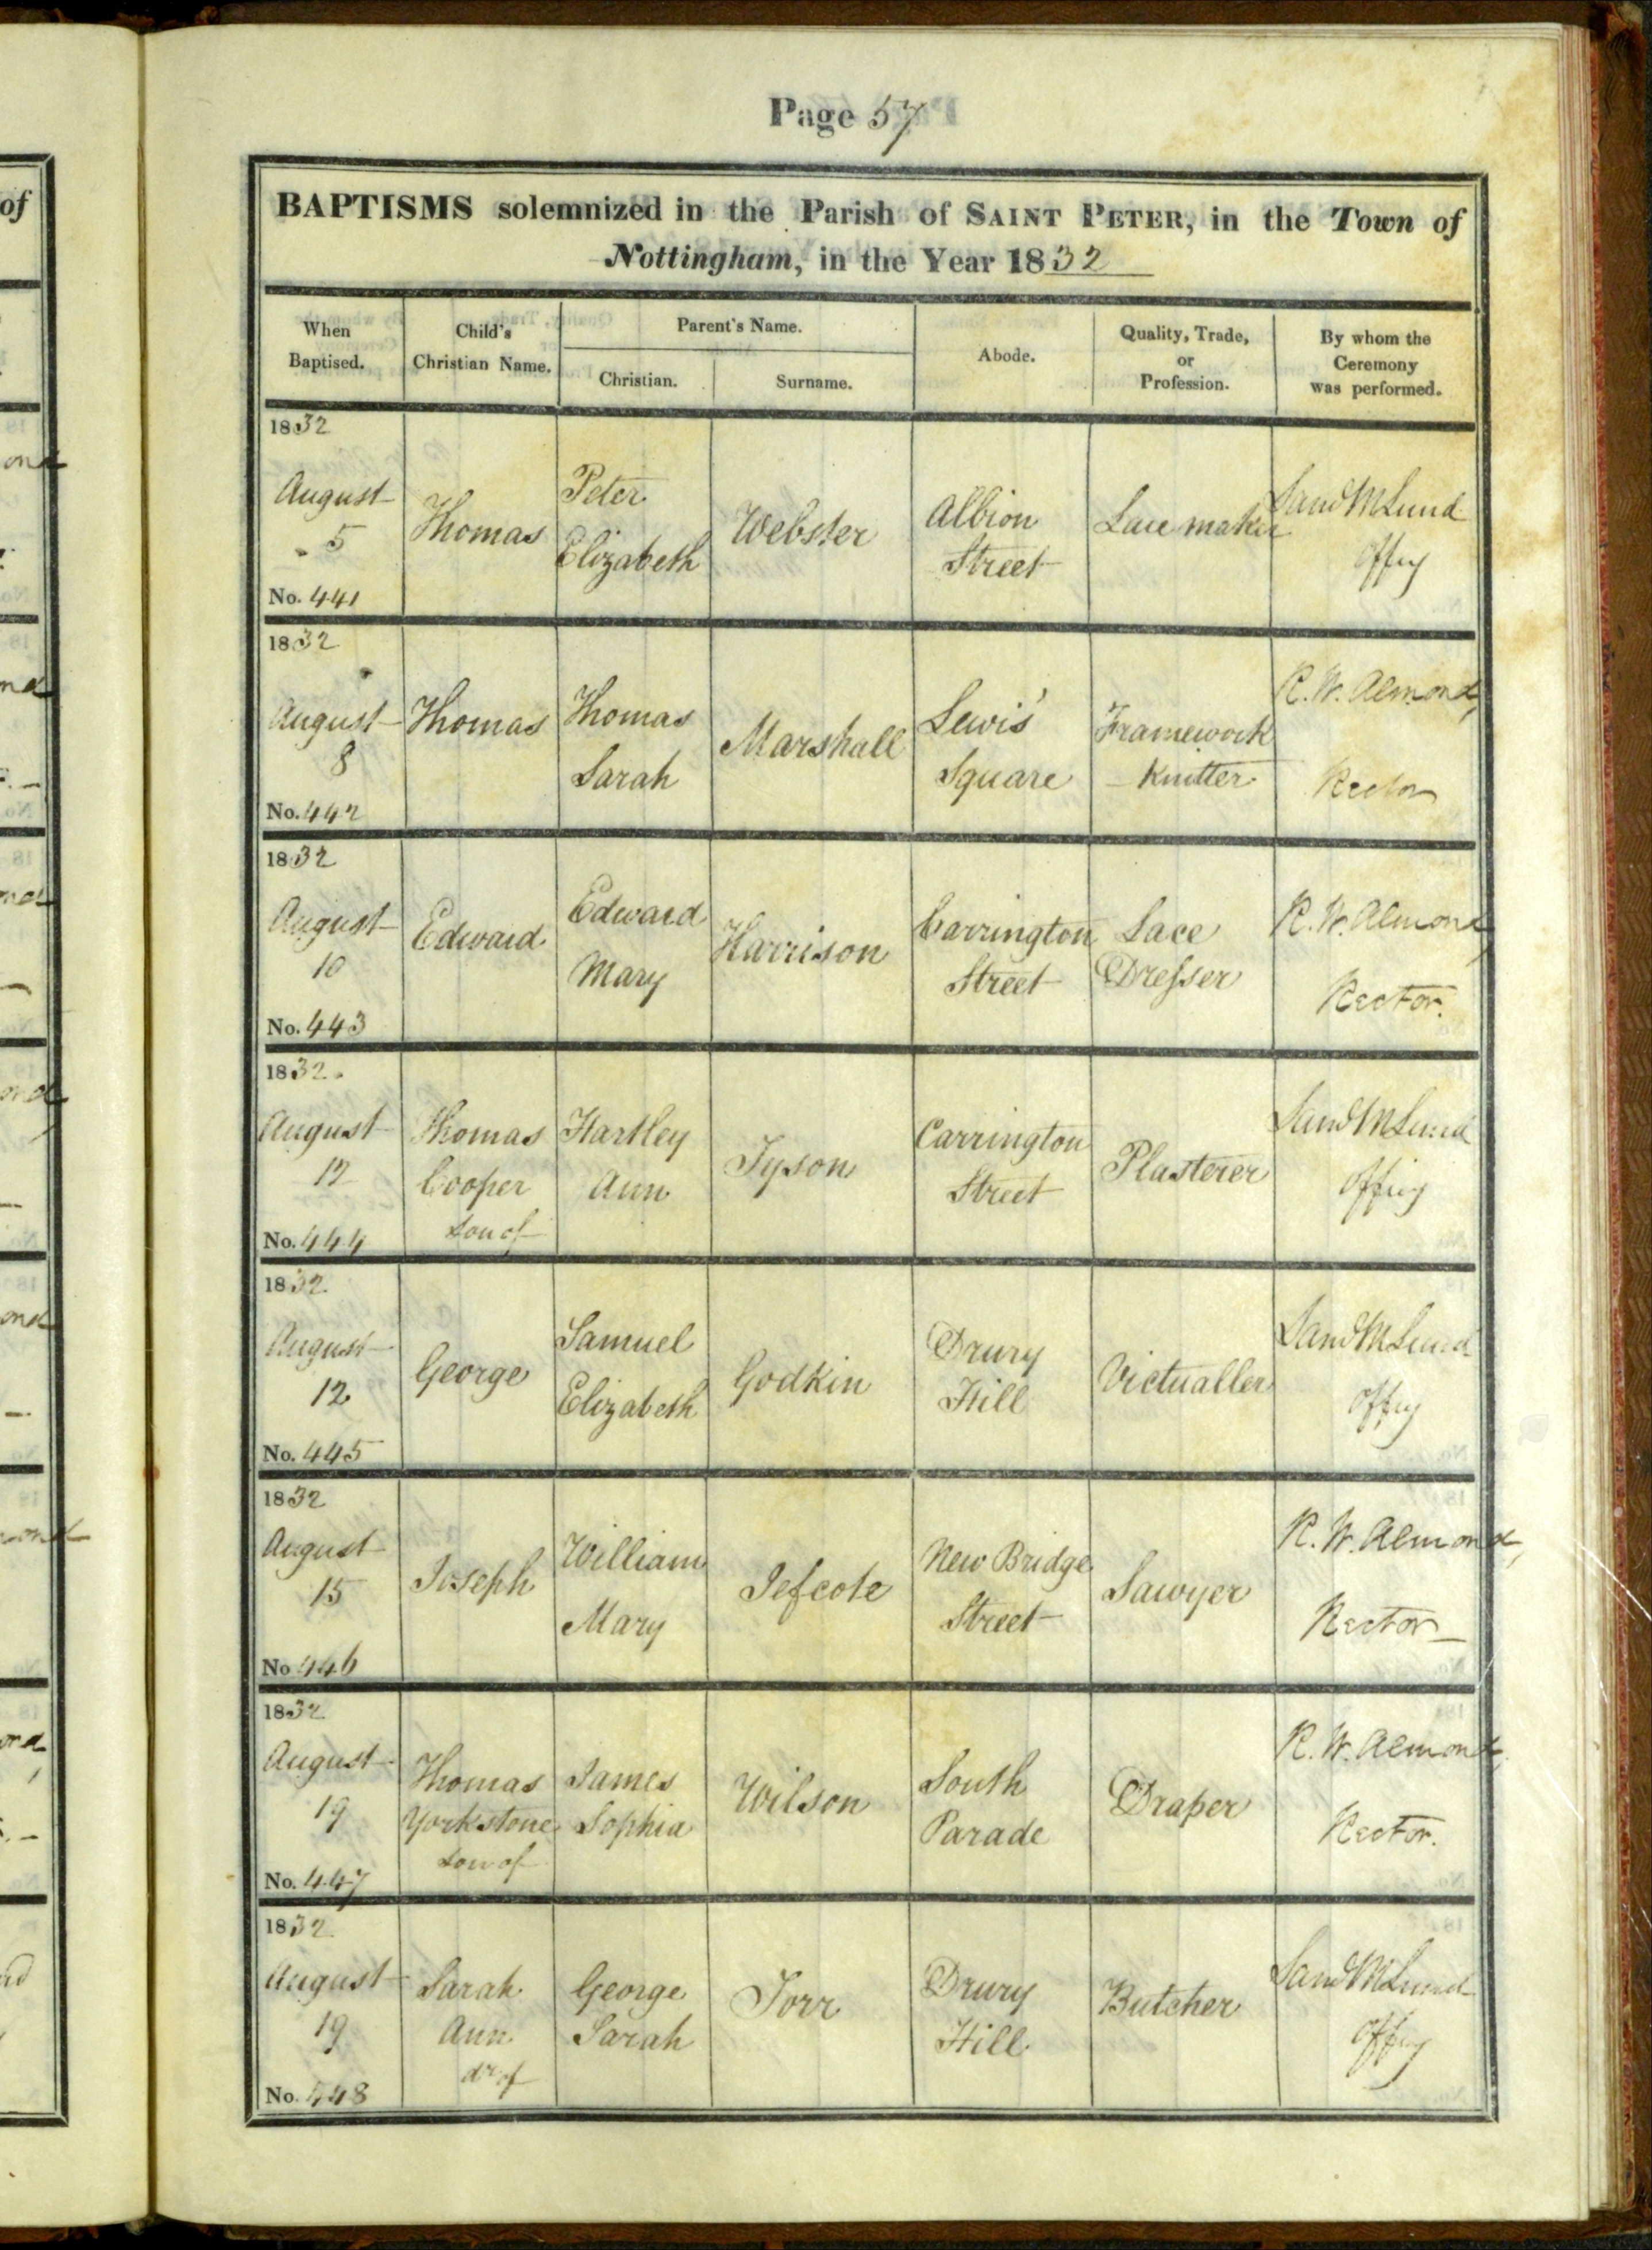 Page 57
BAPTISMS solemnized in the Parish of SAINT PETER, in the Town of
Nottingham, in the Year 1832
When
Baptised.
Child's
Christian Name.
Parent's Name.
Christian.
Surname.
Abode.
Quality, Trade,
or
Profession.
By whom the
Ceremony
was performed.
1832
August
5
No. 441
Thomas
Peter
Elizabeth
Webster
Albion
Street
Lace maker
Lund
Offg
1832
August
8
No. 442
Thomas
Thomas
Sarah
Marshall
Lewis'
Square
Framework
Knitter
R. W. Almond,
Rector
1832
August
10
No. 443
Edward
Edward
Mary
Harrison
Carrington
Street
Lace
Dresser
R. W. Almond,
Rector.
1832.
August
12
No. 444
Thomas
Cooper
son of
Hartley
Ann
Tyson
Carrington
Street
Plasterer
Lund
Offig
1832
August
12
No. 445
George
Samuel
Elizabeth
Godkin
Drury
Hill
Victualler
Lund
Offg
1832
August
15
No 446
Joseph
William
Mary
Jefcote
New Bridge
Street
Sawyer
R. W. Almond,
Rector
1832
August
19
No. 447
Thomas
Yorkstone
son of
James
Sophia
Wilson
South
Parade
Draper
R. W. Almond,
Rector.
1832
August
19
No. 448
Sarah
Ann
dr of
George
Sarah
Torr
Drury
Hill
Butcher
Lund
Offg